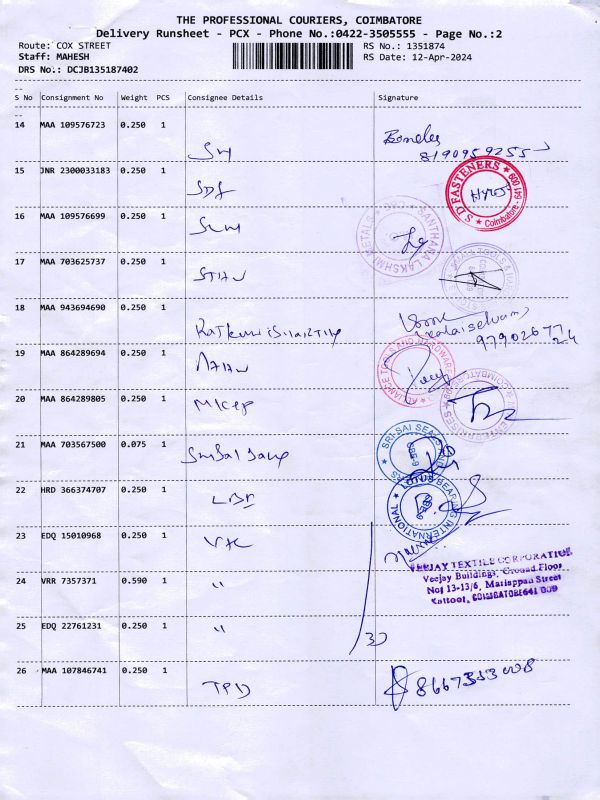 THE PROFESSIONAL COURIERS, COIMBATORE
Delivery Runsheet - PCX - Phone No.:0422-3505555 - Page No.:2
Route: COX STREET
RS No.: 1351874
Staff: MAHESH
RS Date: 12-Apr-2024
DRS No.: DCJB135187402
--
S No Consignment No Weight PCS Consignee Details Signature
--
14 MAA 109576723 0.250 1
8190959255
15 JNR 2300033183 0.250 1
SDF
S D FASTENERS
Coimbatore - 641 009
16 MAA 109576699 0.250 1
SANTHANA LAKSHMI METALS
17 MAA 703625737 0.250 1
18 MAA 943694690 0.250 1
kalaiselvam
9790267724
19 MAA 864289694 0.250 1
ALLIANCE TOOLS AND HARDWARE
20 MAA 864289805 0.250 1
21 MAA 703567500 0.075 1
SRI SAI SEALS
22 HRD 366374707 0.250 1
LBI
LOTUS BEARING INTERNATIONAL
23 EDQ 15010968 0.250 1
VTC
VEEJAY TEXTILE CORPORATION
Veejay Buildings, Ground Floor
No: 13-13/6, Mariappan Street
Kattoor, COIMBATORE 641 009
24 VRR 7357371 0.590 1
"
25 EDQ 22761231 0.250 1
"
26 MAA 107846741 0.250 1
TPD
8667353008